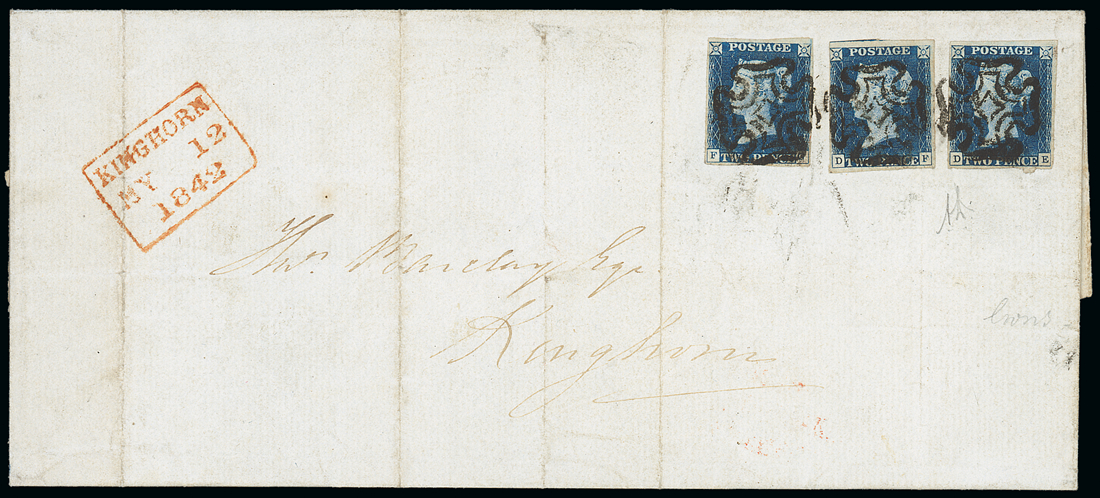 POSTAGE
F
TWO PENCE
POSTAGE
D TWO PENCE F
POSTAGE
D TWO PENCE E
KINGHORN
MY 12
1842
Thos. Barclay Esqr.
Kinghorn